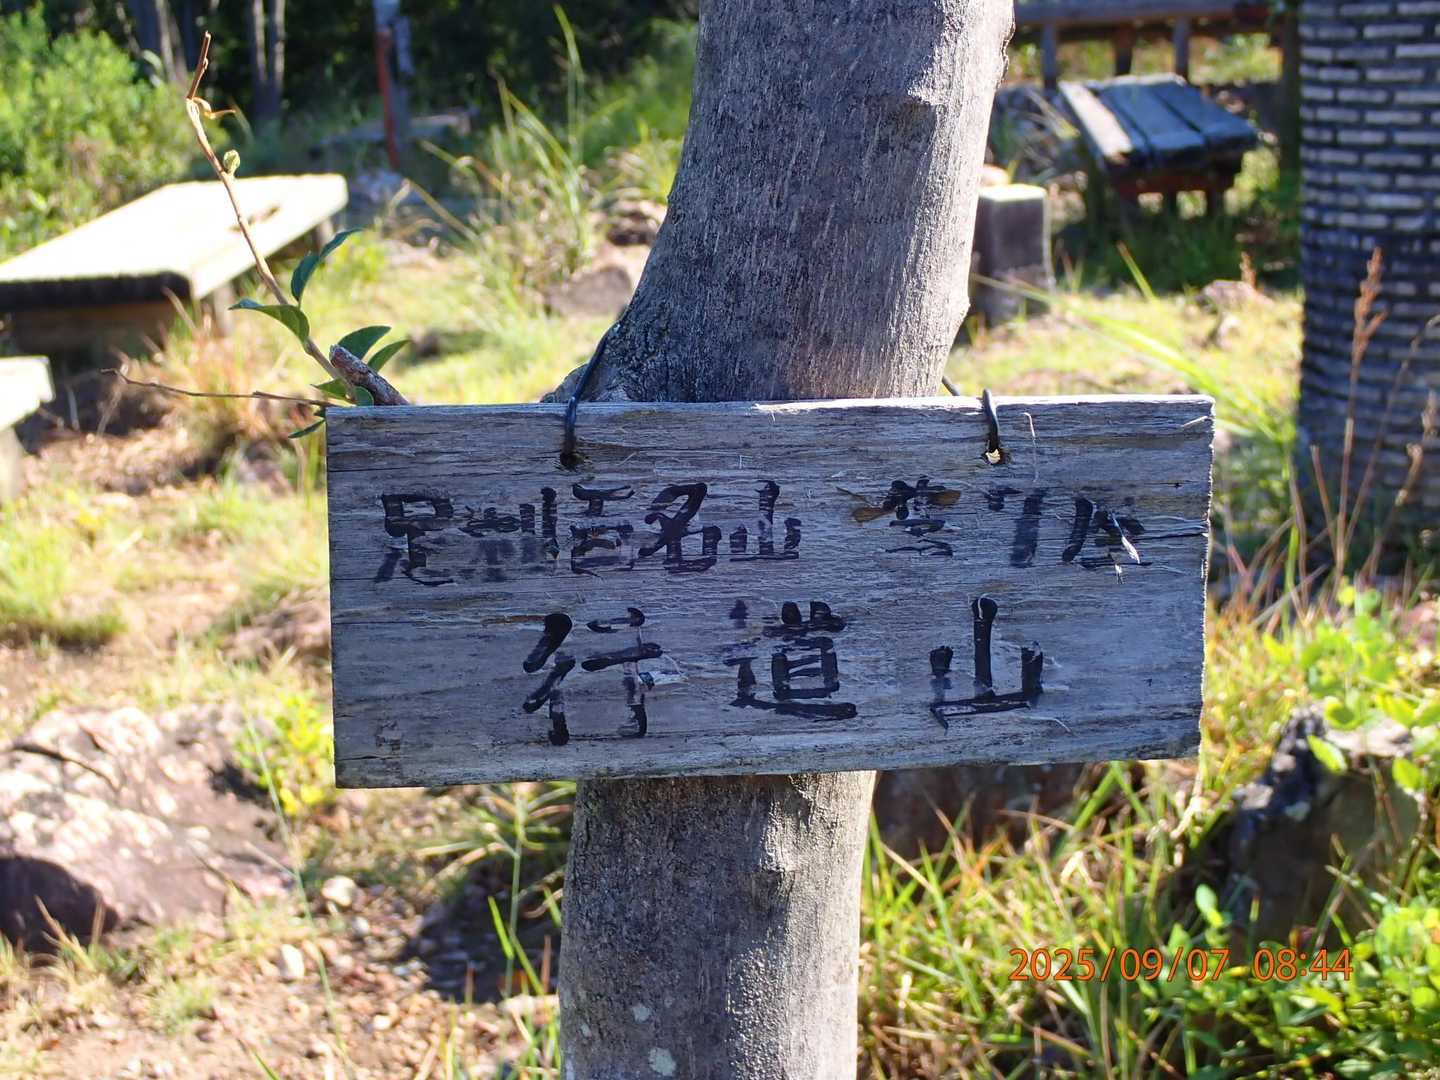 足利百名山
行道山
2025/09/07 08:44